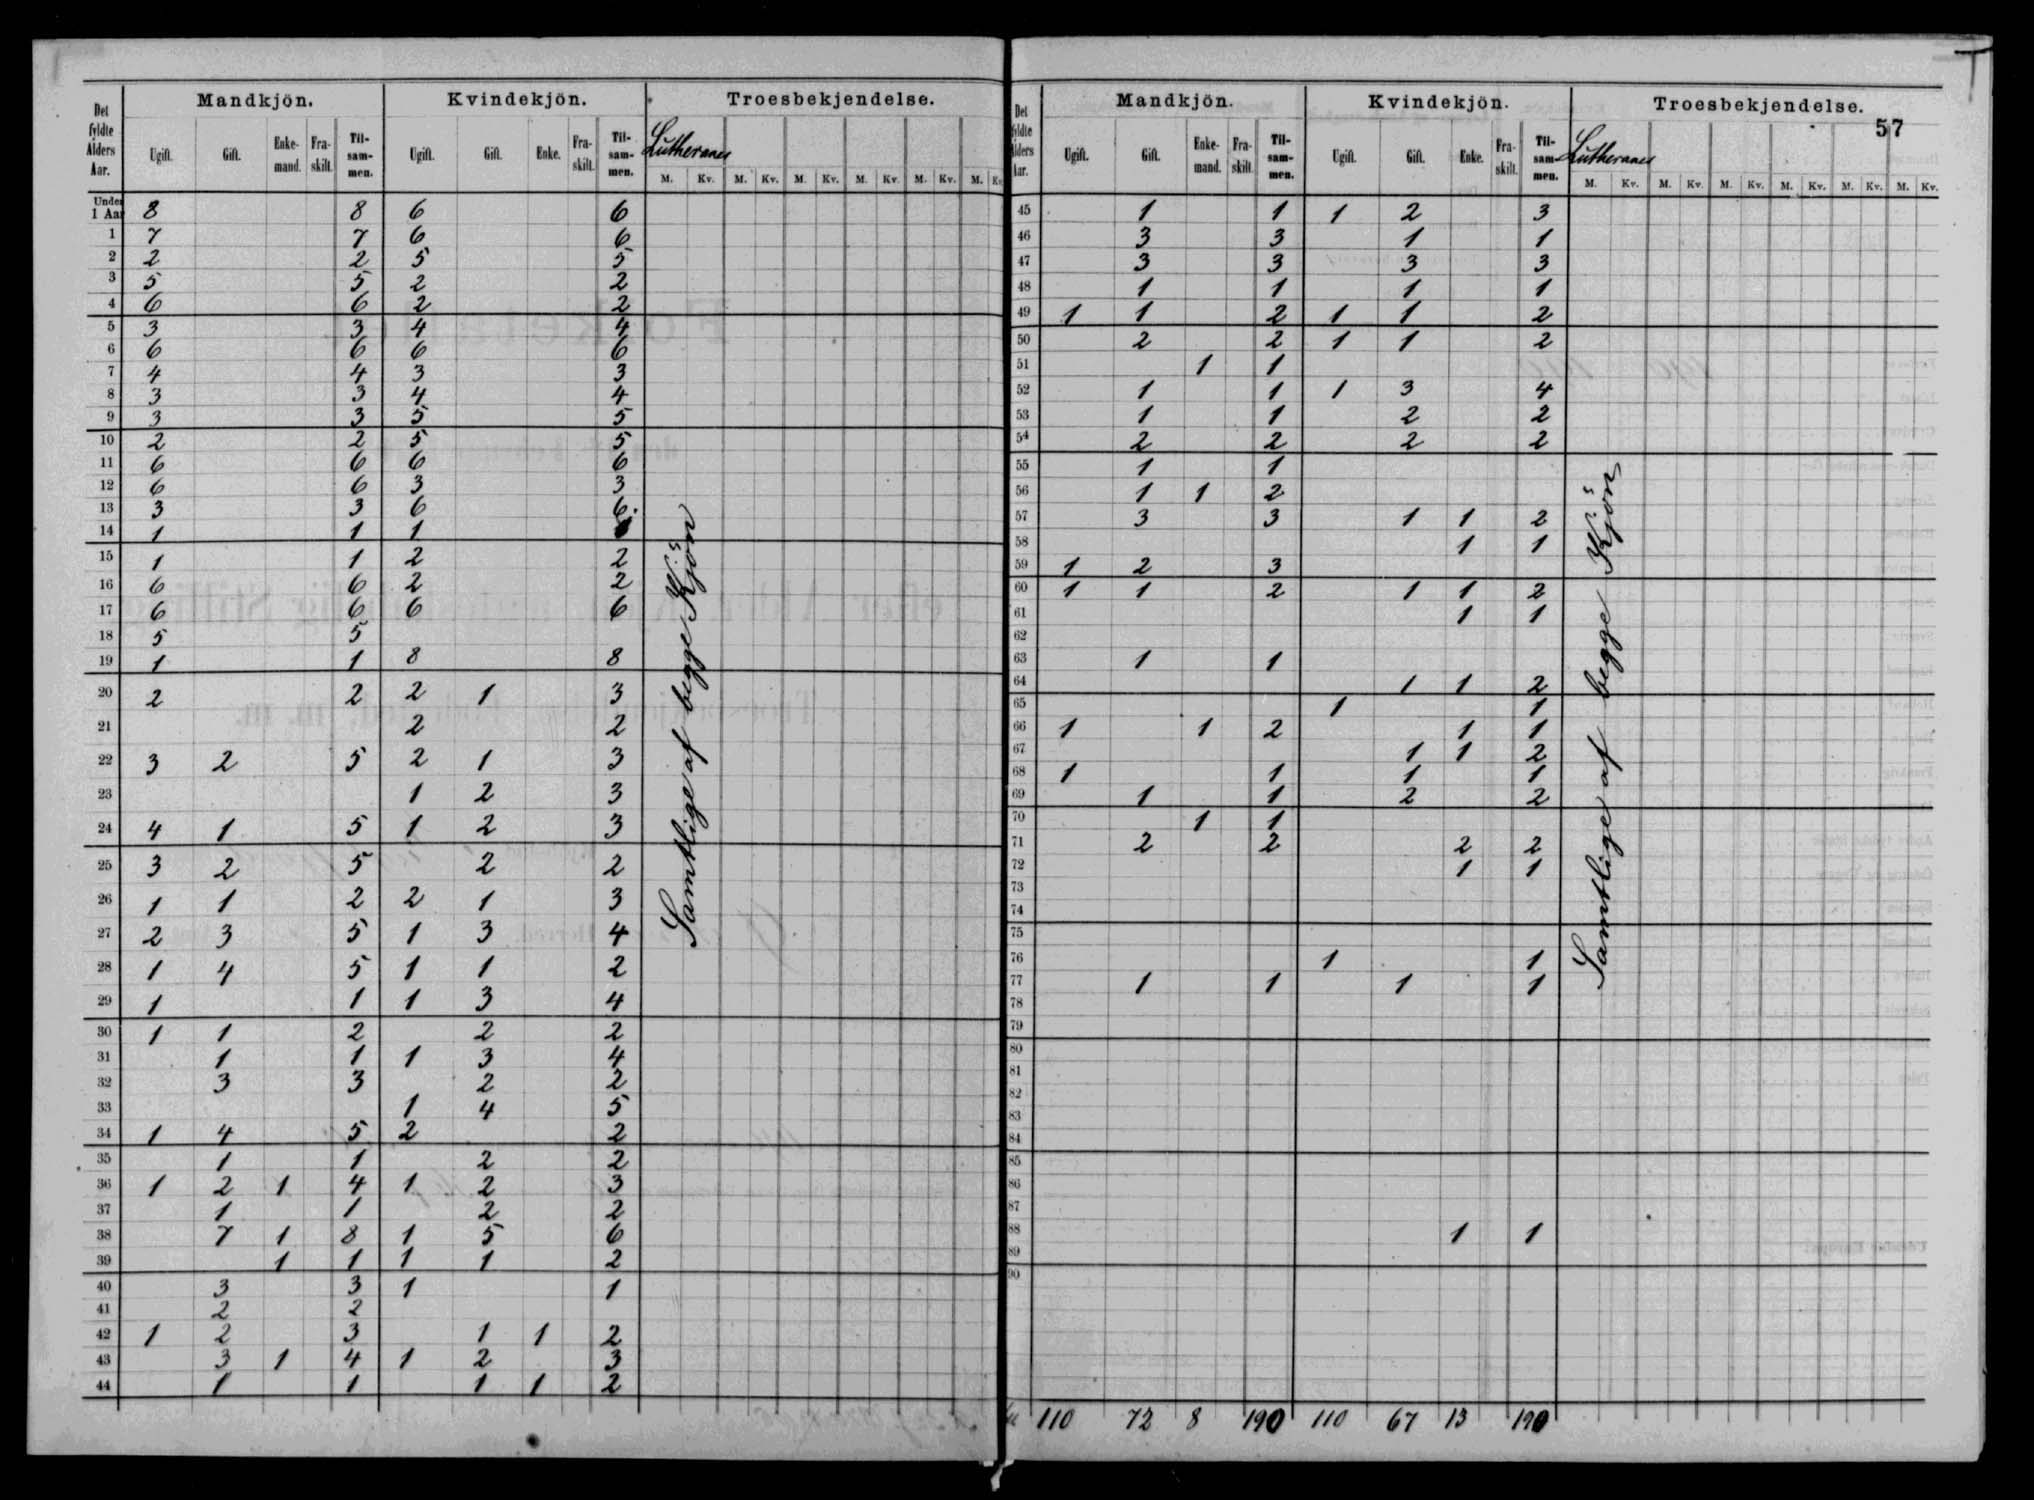 Det fyldte Alders Aar. | Mandkjön. | Kvindekjön. | Troesbekjendelse.
Ugift. | Gift. | Enke-mand. | Fra-skilt. | Til-sam-men. | Ugift. | Gift. | Enke. | Fra-skilt. | Til-sam-men. | Lutheranere
M. | Kv. | M. | Kv. | M. | Kv. | M. | Kv. | M. | Kv. | M. | Kv.
Under 1 Aar | 8 | | | | 8 | 6 | | | | 6
1 | 7 | | | | 7 | 6 | | | | 6
2 | 2 | | | | 2 | 5 | | | | 5
3 | 5 | | | | 5 | 2 | | | | 2
4 | 6 | | | | 6 | 2 | | | | 2
5 | 3 | | | | 3 | 4 | | | | 4
6 | 6 | | | | 6 | 6 | | | | 6
7 | 4 | | | | 4 | 3 | | | | 3
8 | 3 | | | | 3 | 4 | | | | 4
9 | 3 | | | | 3 | 5 | | | | 5
10 | 2 | | | | 2 | 5 | | | | 5
11 | 6 | | | | 6 | 6 | | | | 6
12 | 6 | | | | 6 | 3 | | | | 3
13 | 3 | | | | 3 | 6 | | | | 6
14 | 1 | | | | 1 | 1 | | | | 1
15 | 1 | | | | 1 | 2 | | | | 2
16 | 6 | | | | 6 | 2 | | | | 2
17 | 6 | | | | 6 | 6 | | | | 6
18 | 5 | | | | 5 | | | | |
19 | 1 | | | | 1 | 8 | | | | 8
20 | 2 | | | | 2 | 2 | 1 | | | 3
21 | | | | | | 2 | | | | 2
22 | 3 | 2 | | | 5 | 2 | 1 | | | 3
23 | | | | | | 1 | 2 | | | 3
24 | 4 | 1 | | | 5 | 1 | 2 | | | 3
25 | 3 | 2 | | | 5 | | 2 | | | 2
26 | 1 | 1 | | | 2 | 2 | 1 | | | 3
27 | 2 | 3 | | | 5 | 1 | 3 | | | 4
28 | 1 | 4 | | | 5 | 1 | 1 | | | 2
29 | 1 | | | | 1 | 1 | 3 | | | 4
30 | 1 | 1 | | | 2 | | 2 | | | 2
31 | | 1 | | | 1 | 1 | 3 | | | 4
32 | | 3 | | | 3 | | 2 | | | 2
33 | | | | | | 1 | 4 | | | 5
34 | 1 | 4 | | | 5 | 2 | | | | 2
35 | | 1 | | | 1 | | 2 | | | 2
36 | 1 | 2 | 1 | | 4 | 1 | 2 | | | 3
37 | | 1 | | | 1 | | 2 | | | 2
38 | | 7 | 1 | | 8 | 1 | 5 | | | 6
39 | | | 1 | | 1 | 1 | 1 | | | 2
40 | | 3 | | | 3 | 1 | | | | 1
41 | | 2 | | | 2 | | | | |
42 | 1 | 2 | | | 3 | | 1 | 1 | | 2
43 | | 3 | 1 | | 4 | 1 | 2 | | | 3
44 | | 1 | | | 1 | | 1 | 1 | | 2
Samtlige af begge Kjön
57
Det fyldte Alders Aar. | Mandkjön. | Kvindekjön. | Troesbekjendelse.
Ugift. | Gift. | Enke-mand. | Fra-skilt. | Til-sam-men. | Ugift. | Gift. | Enke. | Fra-skilt. | Til-sam-men. | Lutheranere
M. | Kv. | M. | Kv. | M. | Kv. | M. | Kv. | M. | Kv. | M. | Kv.
45 | | 1 | | | 1 | 1 | 2 | | | 3
46 | | 3 | | | 3 | | 1 | | | 1
47 | | 3 | | | 3 | | 3 | | | 3
48 | | 1 | | | 1 | | 1 | | | 1
49 | 1 | 1 | | | 2 | 1 | 1 | | | 2
50 | | 2 | | | 2 | 1 | 1 | | | 2
51 | | | 1 | | 1 | | | | |
52 | | 1 | | | 1 | 1 | 3 | | | 4
53 | | 1 | | | 1 | | 2 | | | 2
54 | | 2 | | | 2 | | 2 | | | 2
55 | | 1 | | | 1 | | | | |
56 | | 1 | 1 | | 2 | | | | |
57 | | 3 | | | 3 | | 1 | 1 | | 2
58 | | | | | | | | 1 | | 1
59 | 1 | 2 | | | 3 | | | | |
60 | 1 | 1 | | | 2 | | 1 | 1 | | 2
61 | | | | | | | | 1 | | 1
62
63 | | 1 | | | 1 | | | | |
64 | | | | | | | 1 | 1 | | 2
65 | | | | | | 1 | | | | 1
66 | 1 | | 1 | | 2 | | | 1 | | 1
67 | | | | | | | 1 | 1 | | 2
68 | 1 | | | | 1 | | 1 | | | 1
69 | | 1 | | | 1 | | 2 | | | 2
70 | | | 1 | | 1 | | | | |
71 | | 2 | | | 2 | | | 2 | | 2
72 | | | | | | | | 1 | | 1
73
74
75
76 | | | | | | 1 | | | | 1
77 | | 1 | | | 1 | | 1 | | | 1
78
79
80
81
82
83
84
85
86
87
88 | | | | | | | | 1 | | 1
89
90
110 | 72 | 8 | | 190 | 110 | 67 | 13 | | 190
Samtlige af begge Kjön